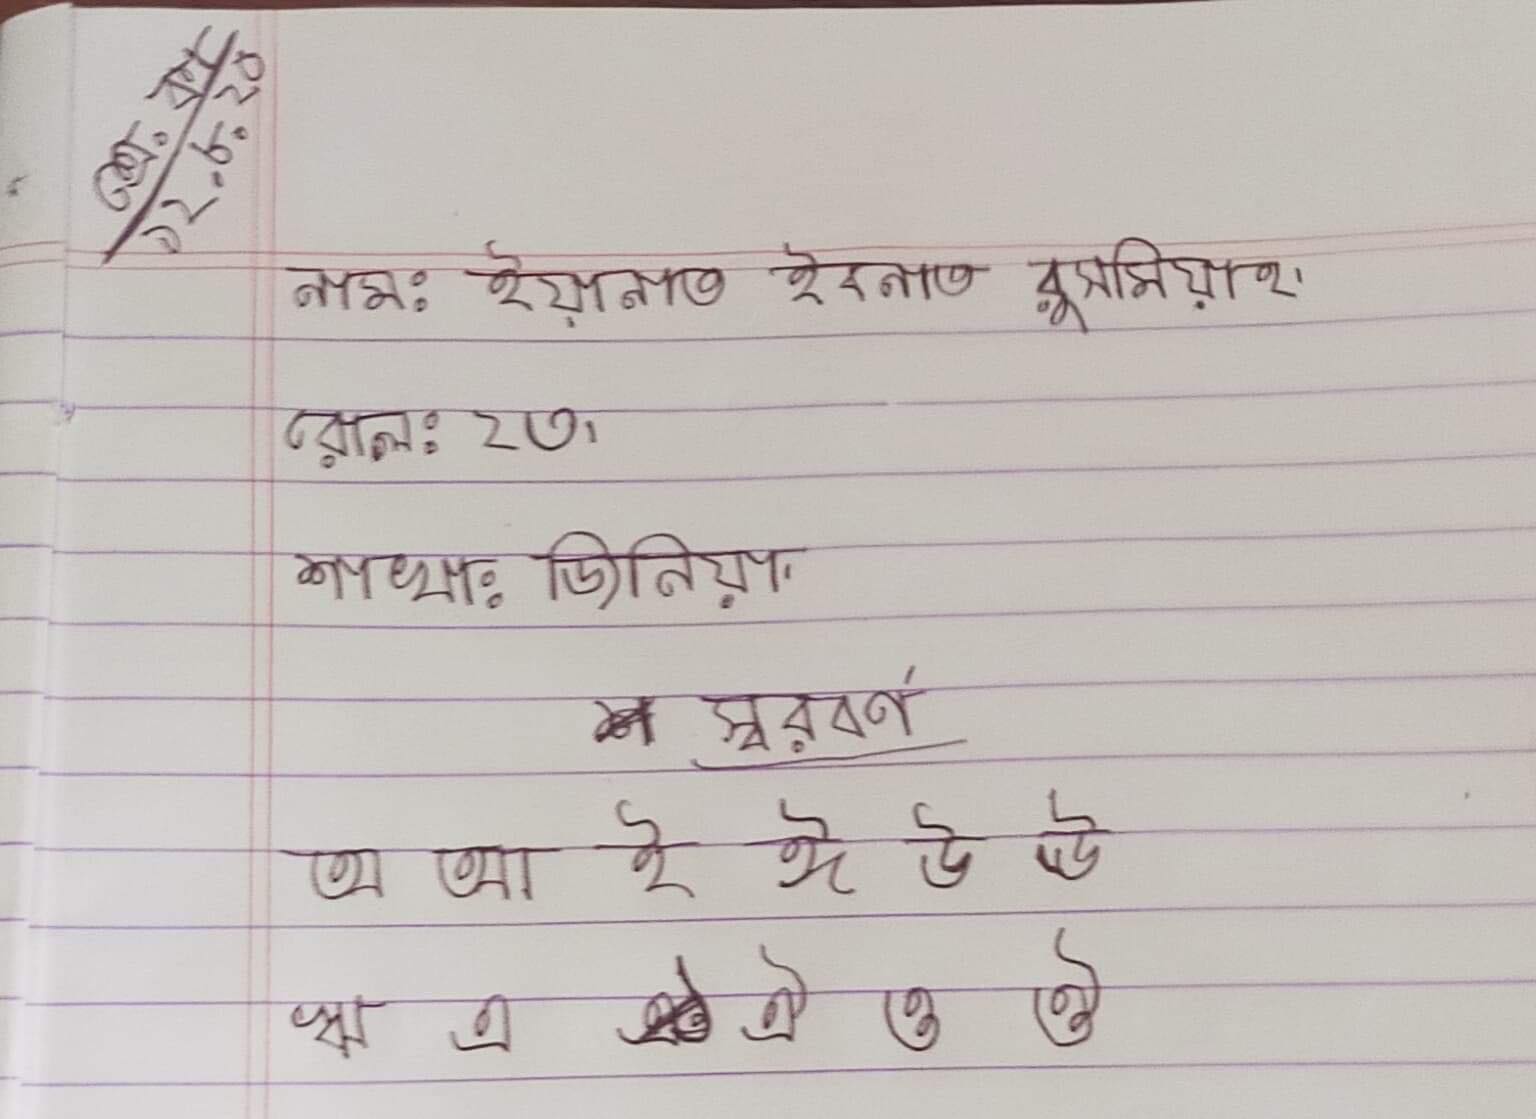 ০২.৮.২০
নামঃ ইয়ানাত ইবনাত রুসমিয়াহ।
রোলঃ ২৩।
শাখাঃ জিনিয়া।
স্বরবর্ণ
অ আ ই ঈ উ ঊ
ঋ এ ঐ ও ঔ